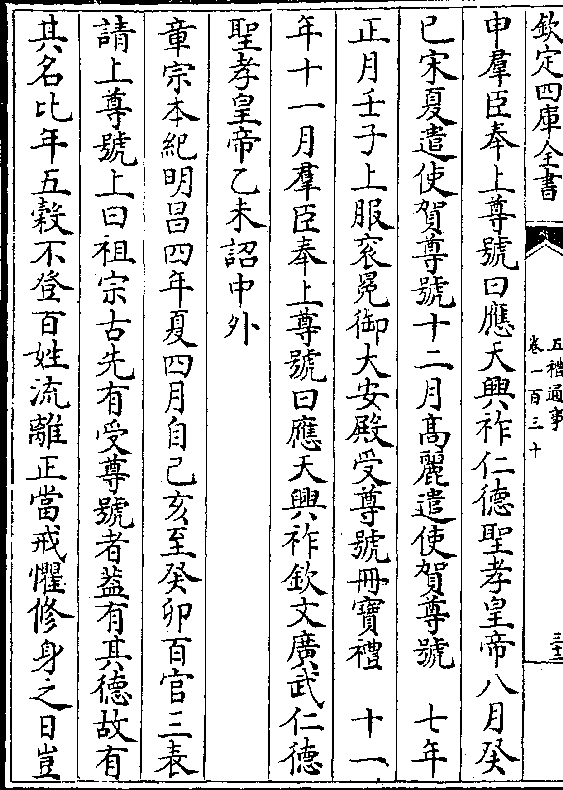 欽定四庫全書
五禮通考
卷一百三十
三十二
申羣臣奉上尊號曰應天興祚仁德聖孝皇帝八月癸
巳宋夏遣使賀尊號十二月髙麗遣使賀尊號　七年
正月壬子上服衮冕御大安殿受尊號冊寶禮　十一
年十一月羣臣奉上尊號曰應天興祚欽文廣武仁德
聖孝皇帝乙未詔中外
章宗本紀明昌四年夏四月自己亥至癸卯百官三表
請上尊號上曰祖宗古先有受尊號者葢有其德故有
其名比年五榖不登百姓流離正當戒懼修身之日豈